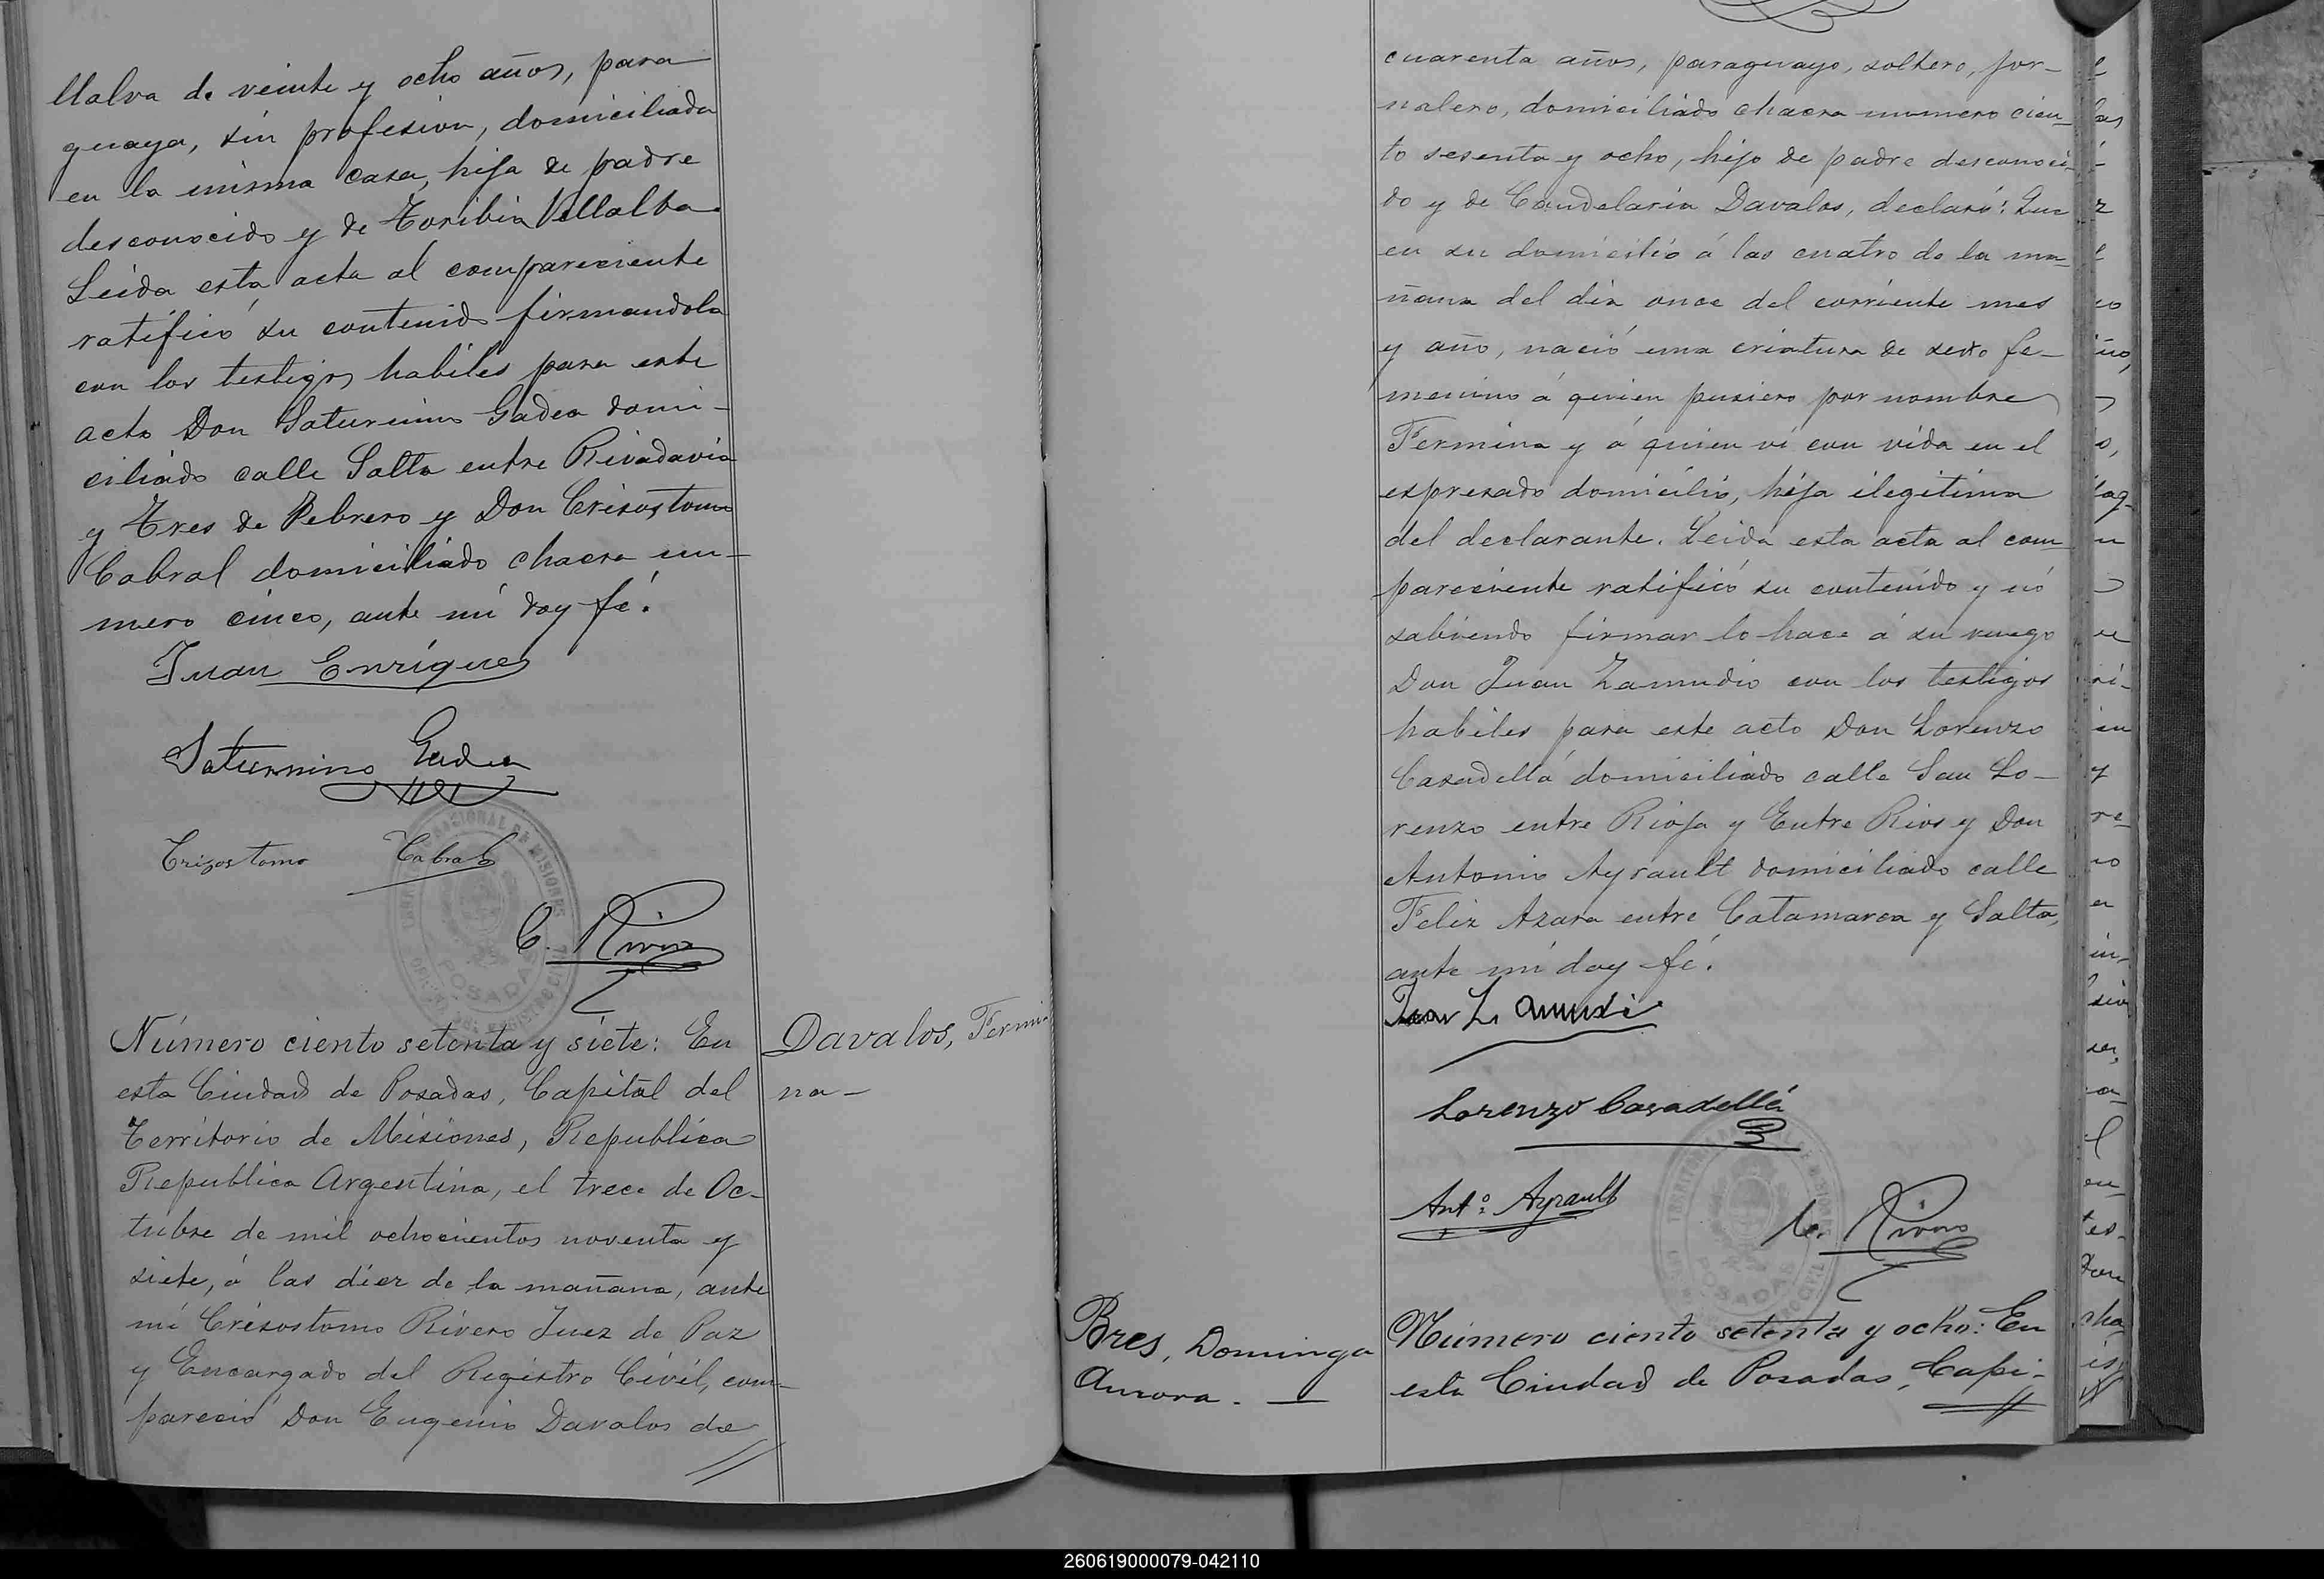 llalva de veinte y ocho años, para
guaya, sin profesion, domiciliada
en la misma casa, hija de padre
desconocido y de Toribia Villalba
Leida esta acta al compareciente
ratificó su contenido firmandola
con los testigos habiles para este
acto Don Saturnino Gadea domi-
ciliado calle Salta entre Rivadavia
y Tres de Febrero y Don Crisostomo
Cabral domiciliado chacra nu-
mero cinco, ante mi doy fé.
Juan Enrigues
Saturnino Gadea
Crizostomo Cabral
C. Rivero
POSADAS
Número ciento setenta y siete: En
esta Ciudad de Posadas, Capital del
Territorio de Misiones, Republica
Republica Argentina, el trece de Oc-
tubre de mil ochocientos noventa y
siete, á las diez de la mañana, ante
mi Crisostomo Rivero Juez de Paz
y Encargado del Registro Civil, com-
pareció Don Eugenio Davalos de
Davalos, Fermi
na -
cuarenta años, paraguayo, soltero, jor-
nalero, domiciliado chacra numero cien-
to sesenta y ocho, hijo de padre desconoci-
do y de Candelaria Davalos, declaró: Que
en su domicilio á las cuatro de la ma-
ñana del dia once del corriente mes
y año, nació una criatura de sexo fe-
menino á quien pusiero por nombre
Fermina y á quien ví con vida en el
espresado domicilio, hija ilegitima
del declarante. Leida esta acta al com-
pareciente ratificó su contenido y nó
sabiendo firmar lo hace á su ruego
Don Juan Zamudio con los testigos
habiles para este acto Don Lorenzo
Casadellá domiciliado calle San Lo-
renzo entre Rioja y Entre Rios y Don
Antonio Ayrault domiciliado calle
Feliz Azara entre Catamarca y Salta,
ante mí doy fé.
Juan Z
Lorenzo Casadellá
Ant.º Ayrault
C. Rivero
POSADAS
Bres, Dominga
Aurora. -
Número ciento setenta y ocho: En
esta Ciudad de Posadas, Capi-
260619000079-042110